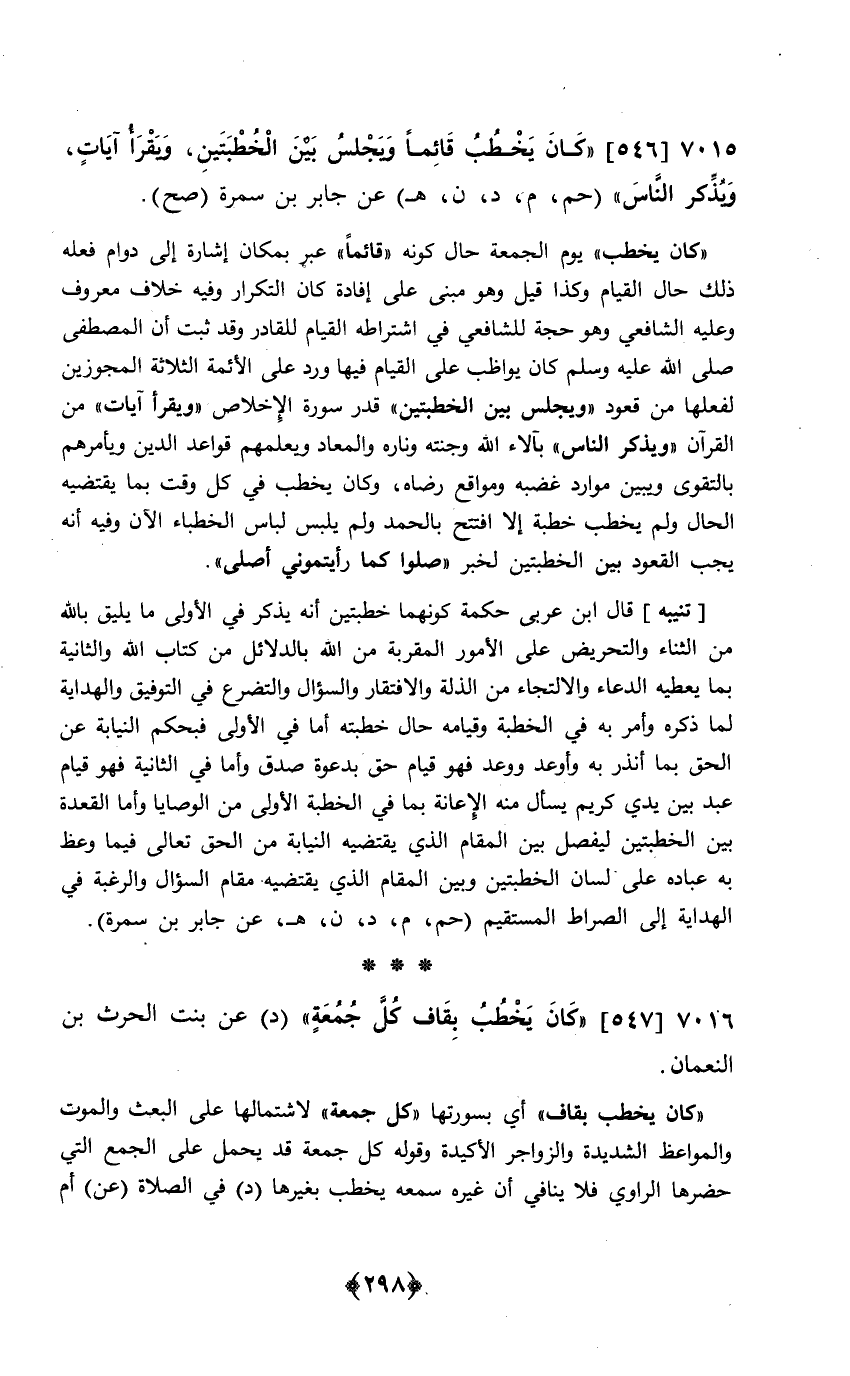 ٧٠١٥ [٥٤٦] «كَانَ يَخْطُبُ قَائِماً وَيَجْلسُ بَيْنَ الْخُطْبَتَينِ، وَيَقْرَأُ آيَاتٍ،
وَيُذَكِّر النَّاسَ» (حم، م، د، ن، هـ) عن جابر بن سمرة (صح).
«كان يخطب» يوم الجمعة حال كونه «قائماً» عبر بمكان إشارة إلى دوام فعله
ذلك حال القيام وكذا قيل وهو مبنى على إفادة كان التكرار وفيه خلاف معروف
وعليه الشافعي وهو حجة للشافعي في اشتراطه القيام للقادر وقد ثبت أن المصطفى
صلى الله عليه وسلم كان يواظب على القيام فيها ورد على الأئمة الثلاثة المجوزين
لفعلها من قعود «ويجلس بين الخطبتين» قدر سورة الإخلاص «ويقرأ آيات» من
القرآن «ويذكر الناس» بآلاء الله وجنته وناره والمعاد ويعلمهم قواعد الدين ويأمرهم
بالتقوى ويبين موارد غضبه ومواقع رضاه، وكان يخطب في كل وقت بما يقتضيه
الحال ولم يخطب خطبة إلا افتتح بالحمد ولم يلبس لباس الخطباء الآن وفيه أنه
يجب القعود بين الخطبتين لخبر «صلوا كما رأيتموني أصلى».
[ تنبيه ] قال ابن عربى حكمة كونهما خطبتين أنه يذكر في الأولى ما يليق بالله
من الثناء والتحريض على الأمور المقربة من الله بالدلائل من كتاب الله والثانية
بما يعطيه الدعاء والالتجاء من الذلة والافتقار والسؤال والتضرع في التوفيق والهداية
لما ذكره وأمر به في الخطبة وقيامه حال خطبته أما في الأولى فبحكم النيابة عن
الحق بما أنذر به وأوعد ووعد فهو قيام حق بدعوة صدق وأما في الثانية فهو قيام
عبد بين يدي كريم يسأل منه الإعانة بما في الخطبة الأولى من الوصايا وأما القعدة
بين الخطبتين ليفصل بين المقام الذي يقتضيه النيابة من الحق تعالى فيما وعظ
به عباده على لسان الخطبتين وبين المقام الذي يقتضيه مقام السؤال والرغبة في
الهداية إلى الصراط المستقيم (حم، م، د، ن، هـ، عن جابر بن سمرة).
* * *
٧٠١٦ [٥٤٧] «كَانَ يَخْطُبُ بِقَاف كُلَّ جُمُعَةٍ» (د) عن بنت الحرث بن
النعمان.
«كان يخطب بقاف» أي بسورتها «كل جمعة» لاشتمالها على البعث والموت
والمواعظ الشديدة والزواجر الأكيدة وقوله كل جمعة قد يحمل على الجمع التي
حضرها الراوي فلا ينافي أن غيره سمعه يخطب بغيرها (د) في الصلاة (عن) أم
﴿٢٩٨﴾